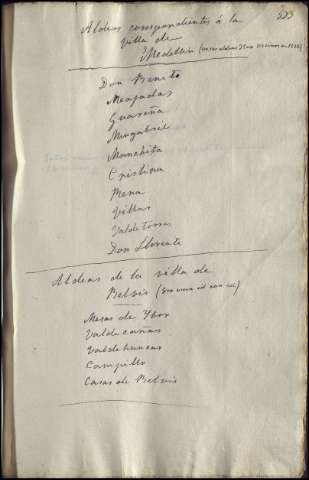 Aldeas correspondientes à la
villa de
Medellin
Don Benito
Miajadas
Guareña
Mengabril
Manchita
Cristina
Mena
Villar
Valdetorres
Don Llorente
Aldeas de la villa de
Belvis
Mesas de Ybor
Valdecañas
Valdehuncar
Campillo
Casas de Belvis